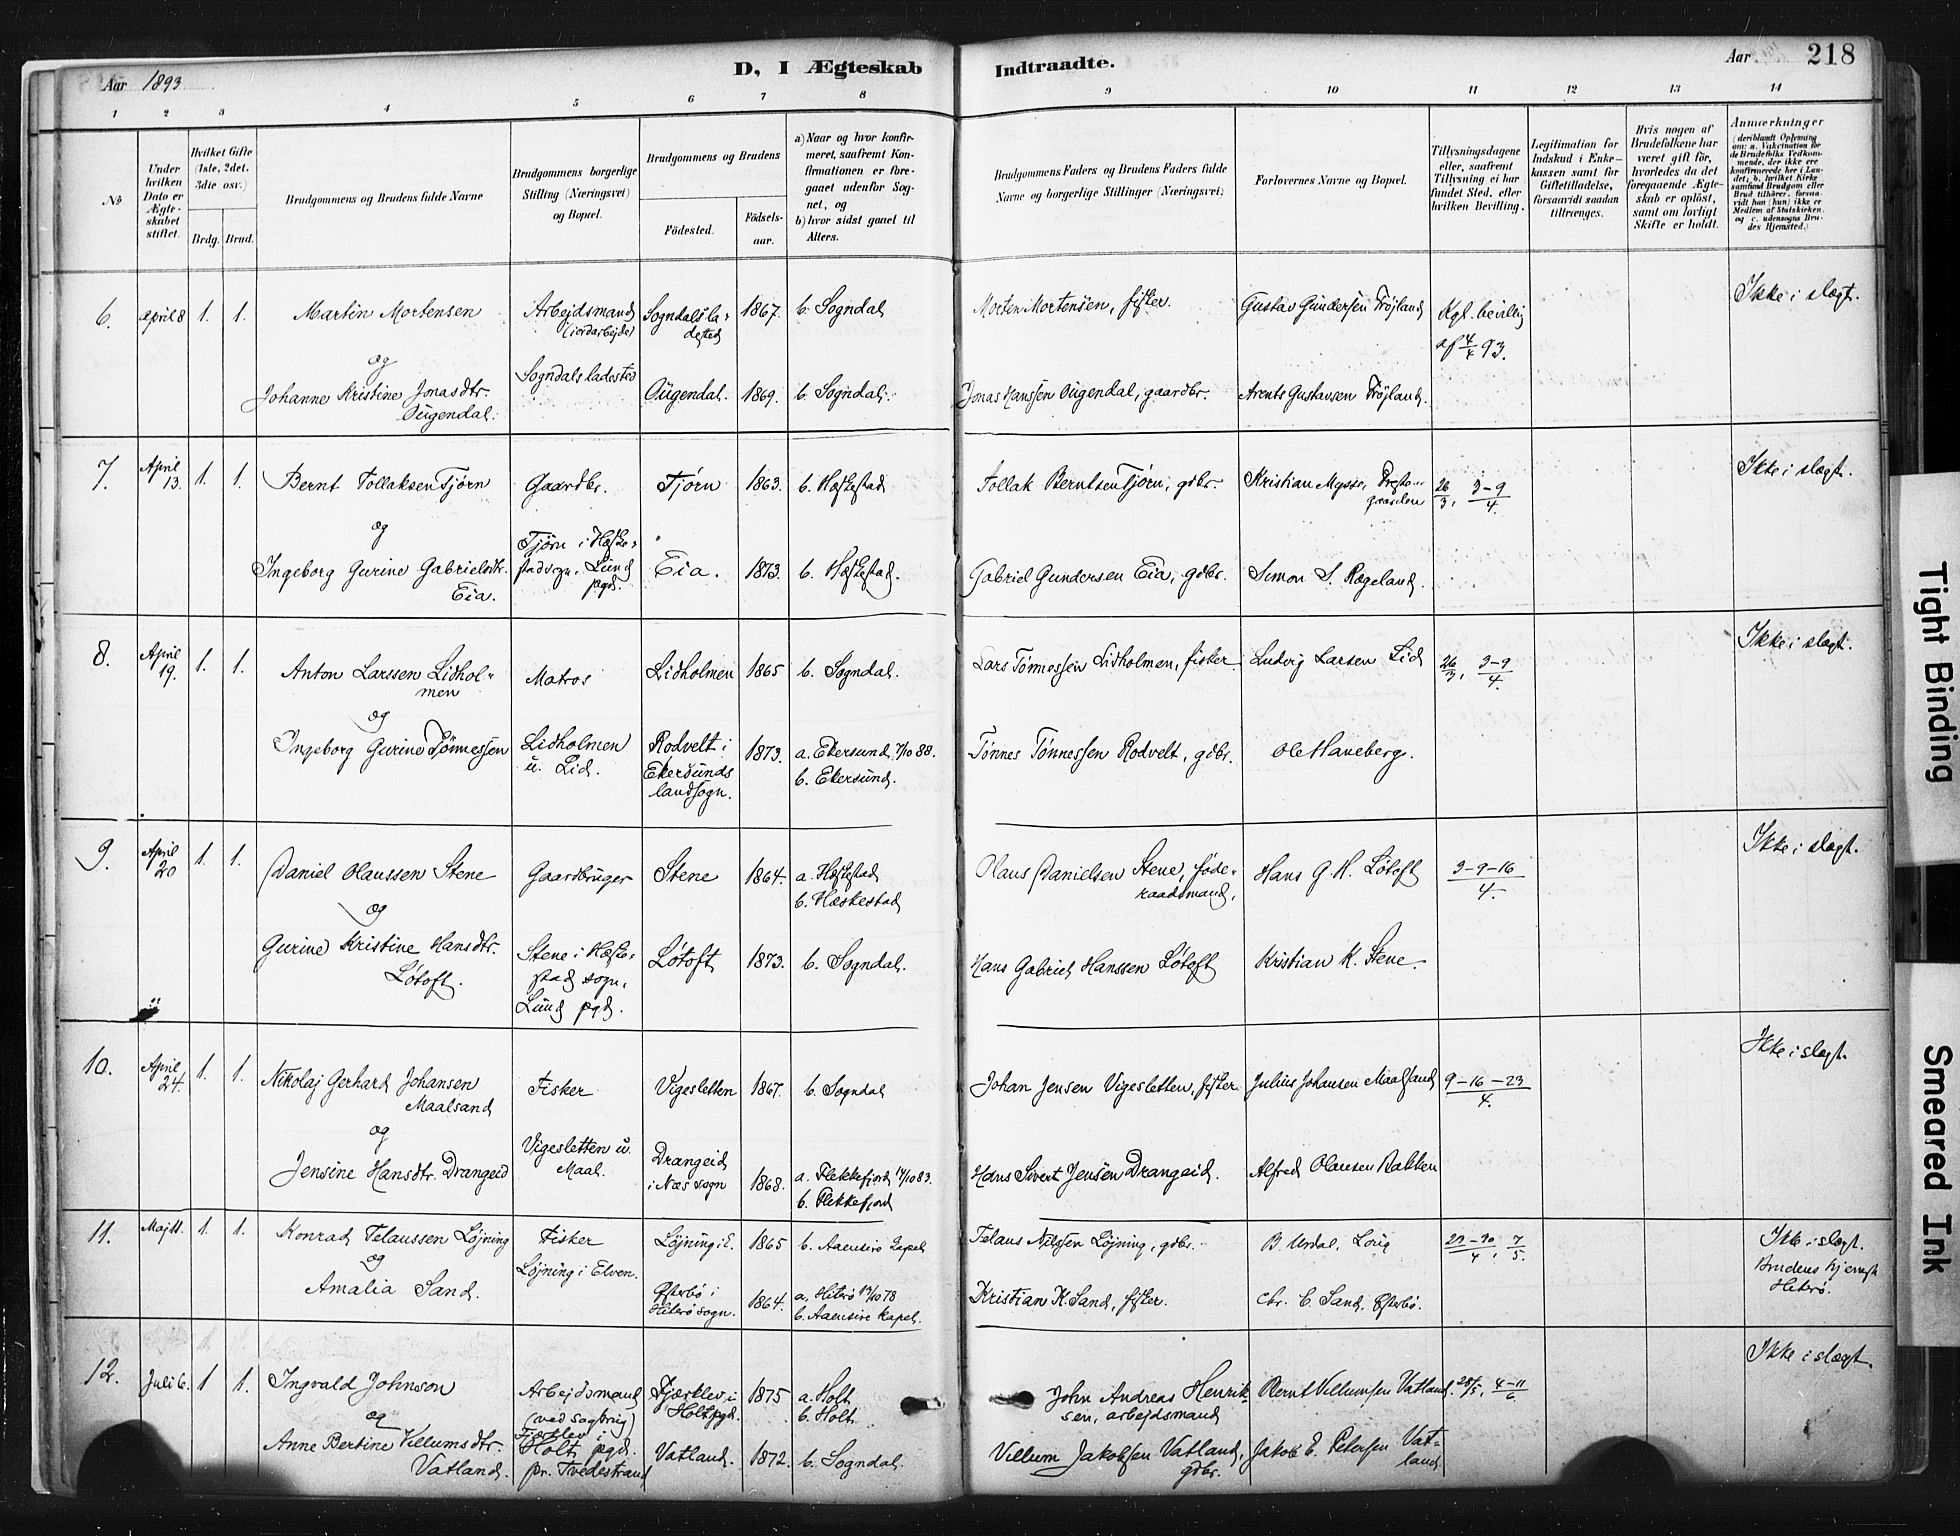 Aar 1893
D, I Ægteskab Indtraadte.
Aar
218
1 2 3 4 5 6 7 8 9 10 11 12 13 14
No
Under hvilken Dato er Ægteskabet stiftet.
Hvilket Gifte (1ste, 2det, 3die osv.)
Brdg. Brud.
Brudgommens og Brudens fulde Navne
Brudgommens borgerlige Stilling (Næringsvei) og Bopæl.
Brudgommens og Brudens
Födested.
Födselsaar.
a) Naar og hvor konfirmeret, saafremt Konfirmationen er foregaaet udenfor Sognet, og
b) hvor sidst gaaet til Alters.
Brudgommens Faders og Brudens Faders fulde Navne og borgerlige Stillinger (Næringsvei)
Forlovernes Navne og Bopæl.
Tillysningsdagene eller, saafremt Tillysning ei har fundet Sted, efter hvilken Bevilling.
Legitimation for Indskud i Enkekassen samt for Giftetilladelse, forsaavidt saadan tiltrænges.
Hvis nogen af Brudefolkene har været gift för, hvorledes da det foregaaende Ægteskab er oplöst, samt om lovligt Skifte er holdt.
Anmærkninger (deriblandt Oplysning om: a. Vaccination for de Brudefolks Vedkommende, der ikke ere konfirmerede her i Landet; b. hvilket Kirkesamfund Brudgom eller Brud tilhörer, forsaavidt han (hun) ikke er Medlem af Statskirken, og c. udensogns Brudes Hjemsted.)
6. April 8 1. 1. Martin Mortensen Arbejdsmand (jordarbejde) Sogndalsladested 1867. b. Sogndal Morten Mortensen, fisker. Gustav Gundersen Frøjland Kgl. bevillig af 4/4 93. Ikke i slægt.
og Sogndals ladested
Johanne Kristine Jonasdtr. Ougendal. Ougendal. 1869. b. Sogndal. Jonas Hanssen Ougendal, gaardbr. Arents Gustavsen Frøjland.
7. April 13. 1. 1. Bernt Tollaksen Tjørn Gaardbr. Tjørn 1863. b. Hæskestad Tollak Berntsen Tjørn, gdbr. Kristian Mysse, Prestegaarden 26/3, 3-9/4. Ikke i slægt.
og Tjørn i Hæskestad sogn, Lund pgd.
Ingeborg Gurine Gabrielsdtr. Eia. Eia. 1873. b. Hæskestad. Gabriel Gundersen Eia, gdbr. Simon S. Rægeland.
8. April 19. 1. 1. Anton Larssen Lidholmen Matros Lidholmen 1865 b. Sogndal. Lars Tønnessen Lidholmen, fisker Ludvig Larsen Lid 26/3, 3-9/4. Ikke i slægt.
og
Ingeborg Gurine Tønnessen Lidholmen u. Lid. Rodvelt i Ekersunds landsogn. 1873. a. Ekersund, 7/10 88. b. Ekersund. Tønnes Tønnessen Rodvelt, gdbr. Ole Haneberg.
9. April 20 1. 1. Daniel Olaussen Stene Gaardbruger Stene 1864. a. Hæskestad b. Hæskestad Olaus Danielsen Stene, føderaadsmand, Hans G. H. Løtoft 3-9-16/4. Ikke i slægt.
og
Gurine Kristine Hansdtr. Løtoft. Stene i Hæskestad sogn, Lund pgd. Løtoft 1873. b. Sogndal. Hans Gabriel Hanssen Løtoft Kristian K. Stene.
10. April 24. 1. 1. Nikolaj Gerhard Johansen Maalsand Fisker Vigesletten 1867. b. Sogndal Johan Jensen Vigesletten, fisker Julius Johansen Maalsand 9-16-23/4. Ikke i slægt.
og Vigesletten u. Maal.
Jensine Hansdtr. Drangeid Drangeid i Næs sogn 1868. a. Flekkefjord 14/10 83. b. Flekkefjord Hans Sivert Jensen Drangeid. Alfred Olausen Bakken
11. Maj 11. 1. 1. Konrad Telaussen Løjning Fisker Løjning i E. 1865 b. Aaensire Kapel Telaus Nilssen Løjning, gdbr. B. Urdal, 23-30/4, 7/5 Ikke i slægt. Brudens hjemst. Hiterø.
og Løjning i Elven.
Amalia Sand. Efterbø i Hiterø sogn. 1864. a. Hiterø 13/10 78 b. Aaensire Kapel. Kristian K. Sand, fisker. Chr. C. Sand, Efterbø.
12. Juli 6. 1 1. Ingvald Johnson Arbejdsmand (ved sagbrug) Fjærklev i Holt pgd. 1875 a. Holt b. Holt John Andreas Henriksen, arbejdsmand Bernt Villumsen Vatland. 28/5, 4-11/6 Ikke i slægt.
og Fjærklev i Holt pgd. pr. Tvedestrand
Anne Bertine Villumsdtr. Vatland. Vatland. 1872. b. Sogndal. Villum Jakobsen Vatland, gdbr. Jakob E. Petersen Vatland
Tight Binding
Smeared Ink